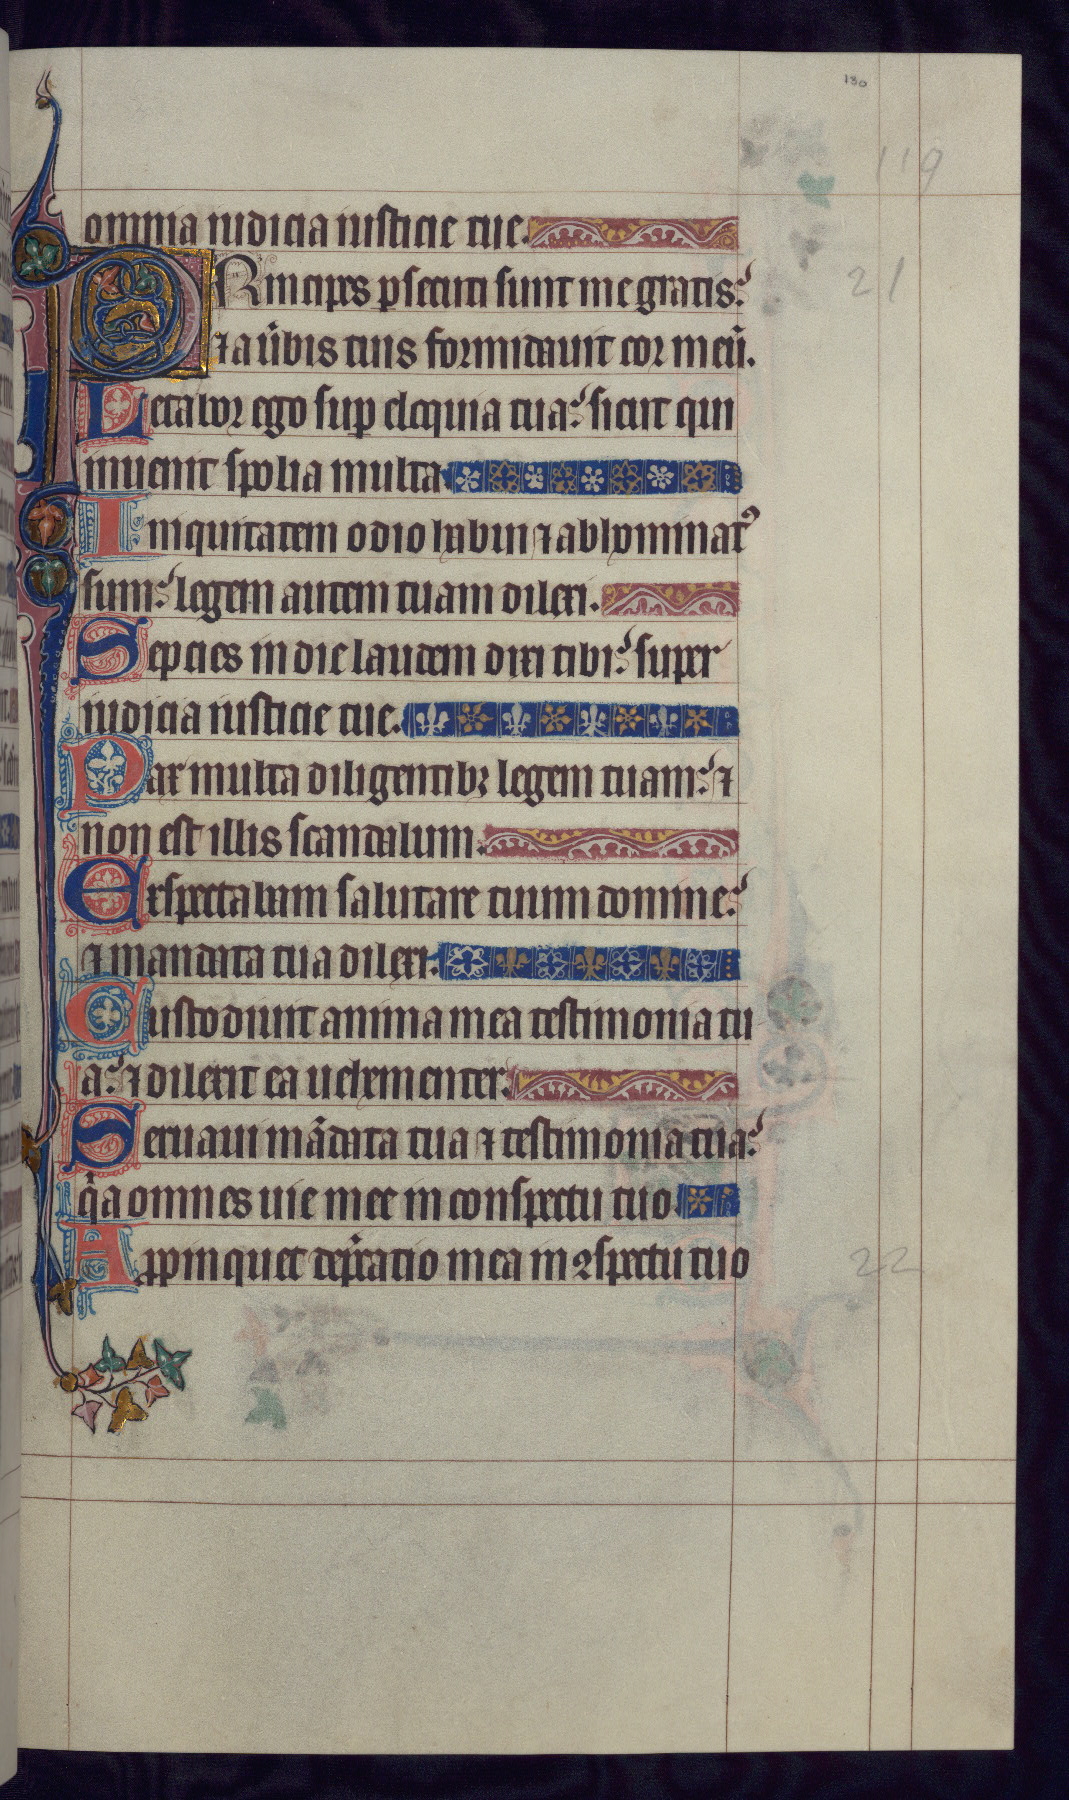 130
119
omnia iudicia iusticie tue.
PRincipes p̱secuti sunt me gratis:
21
⁊ a ũbis tuis formidauit cor meũ.
Letabor ego sup̱ eloquia tua: sicut qui
inuenit spolia multa
Iniquitatem odio habui ⁊ abhominatꝰ
sum: legem autem tuam dilexi.
Sepcies in die laudem dixi tibi: super
iudicia iusticie tue.
Pax multa diligentibꝫ legem tuam: ⁊
non est illis scandalum.
Exspectabam salutare tuum domine:
⁊ mandata tua dilexi.
Custodiuit anima mea testimonia tu
a: ⁊ dilexit ea uehementer.
Seruaui mãdata tua ⁊ testimonia tua:
q̃a omnes uie mee in conspectu tuo
Appinquet dep̃catio mea in ꝯspectu tuo
22